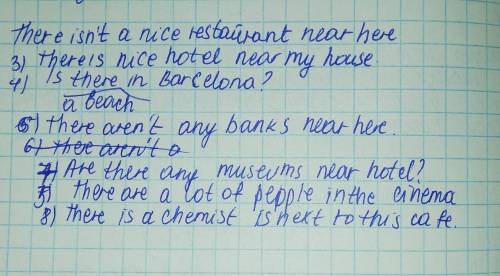 There isn't a nice restaurant near here
3) there is nice hotel near my house.
4) Is there in Barcelona?
a beach
5) there aren't any banks near here.
6) there aren't a
7) Are there any museums near hotel?
there are a lot of people in the cinema
8) there is a chemist is next to this cafe.